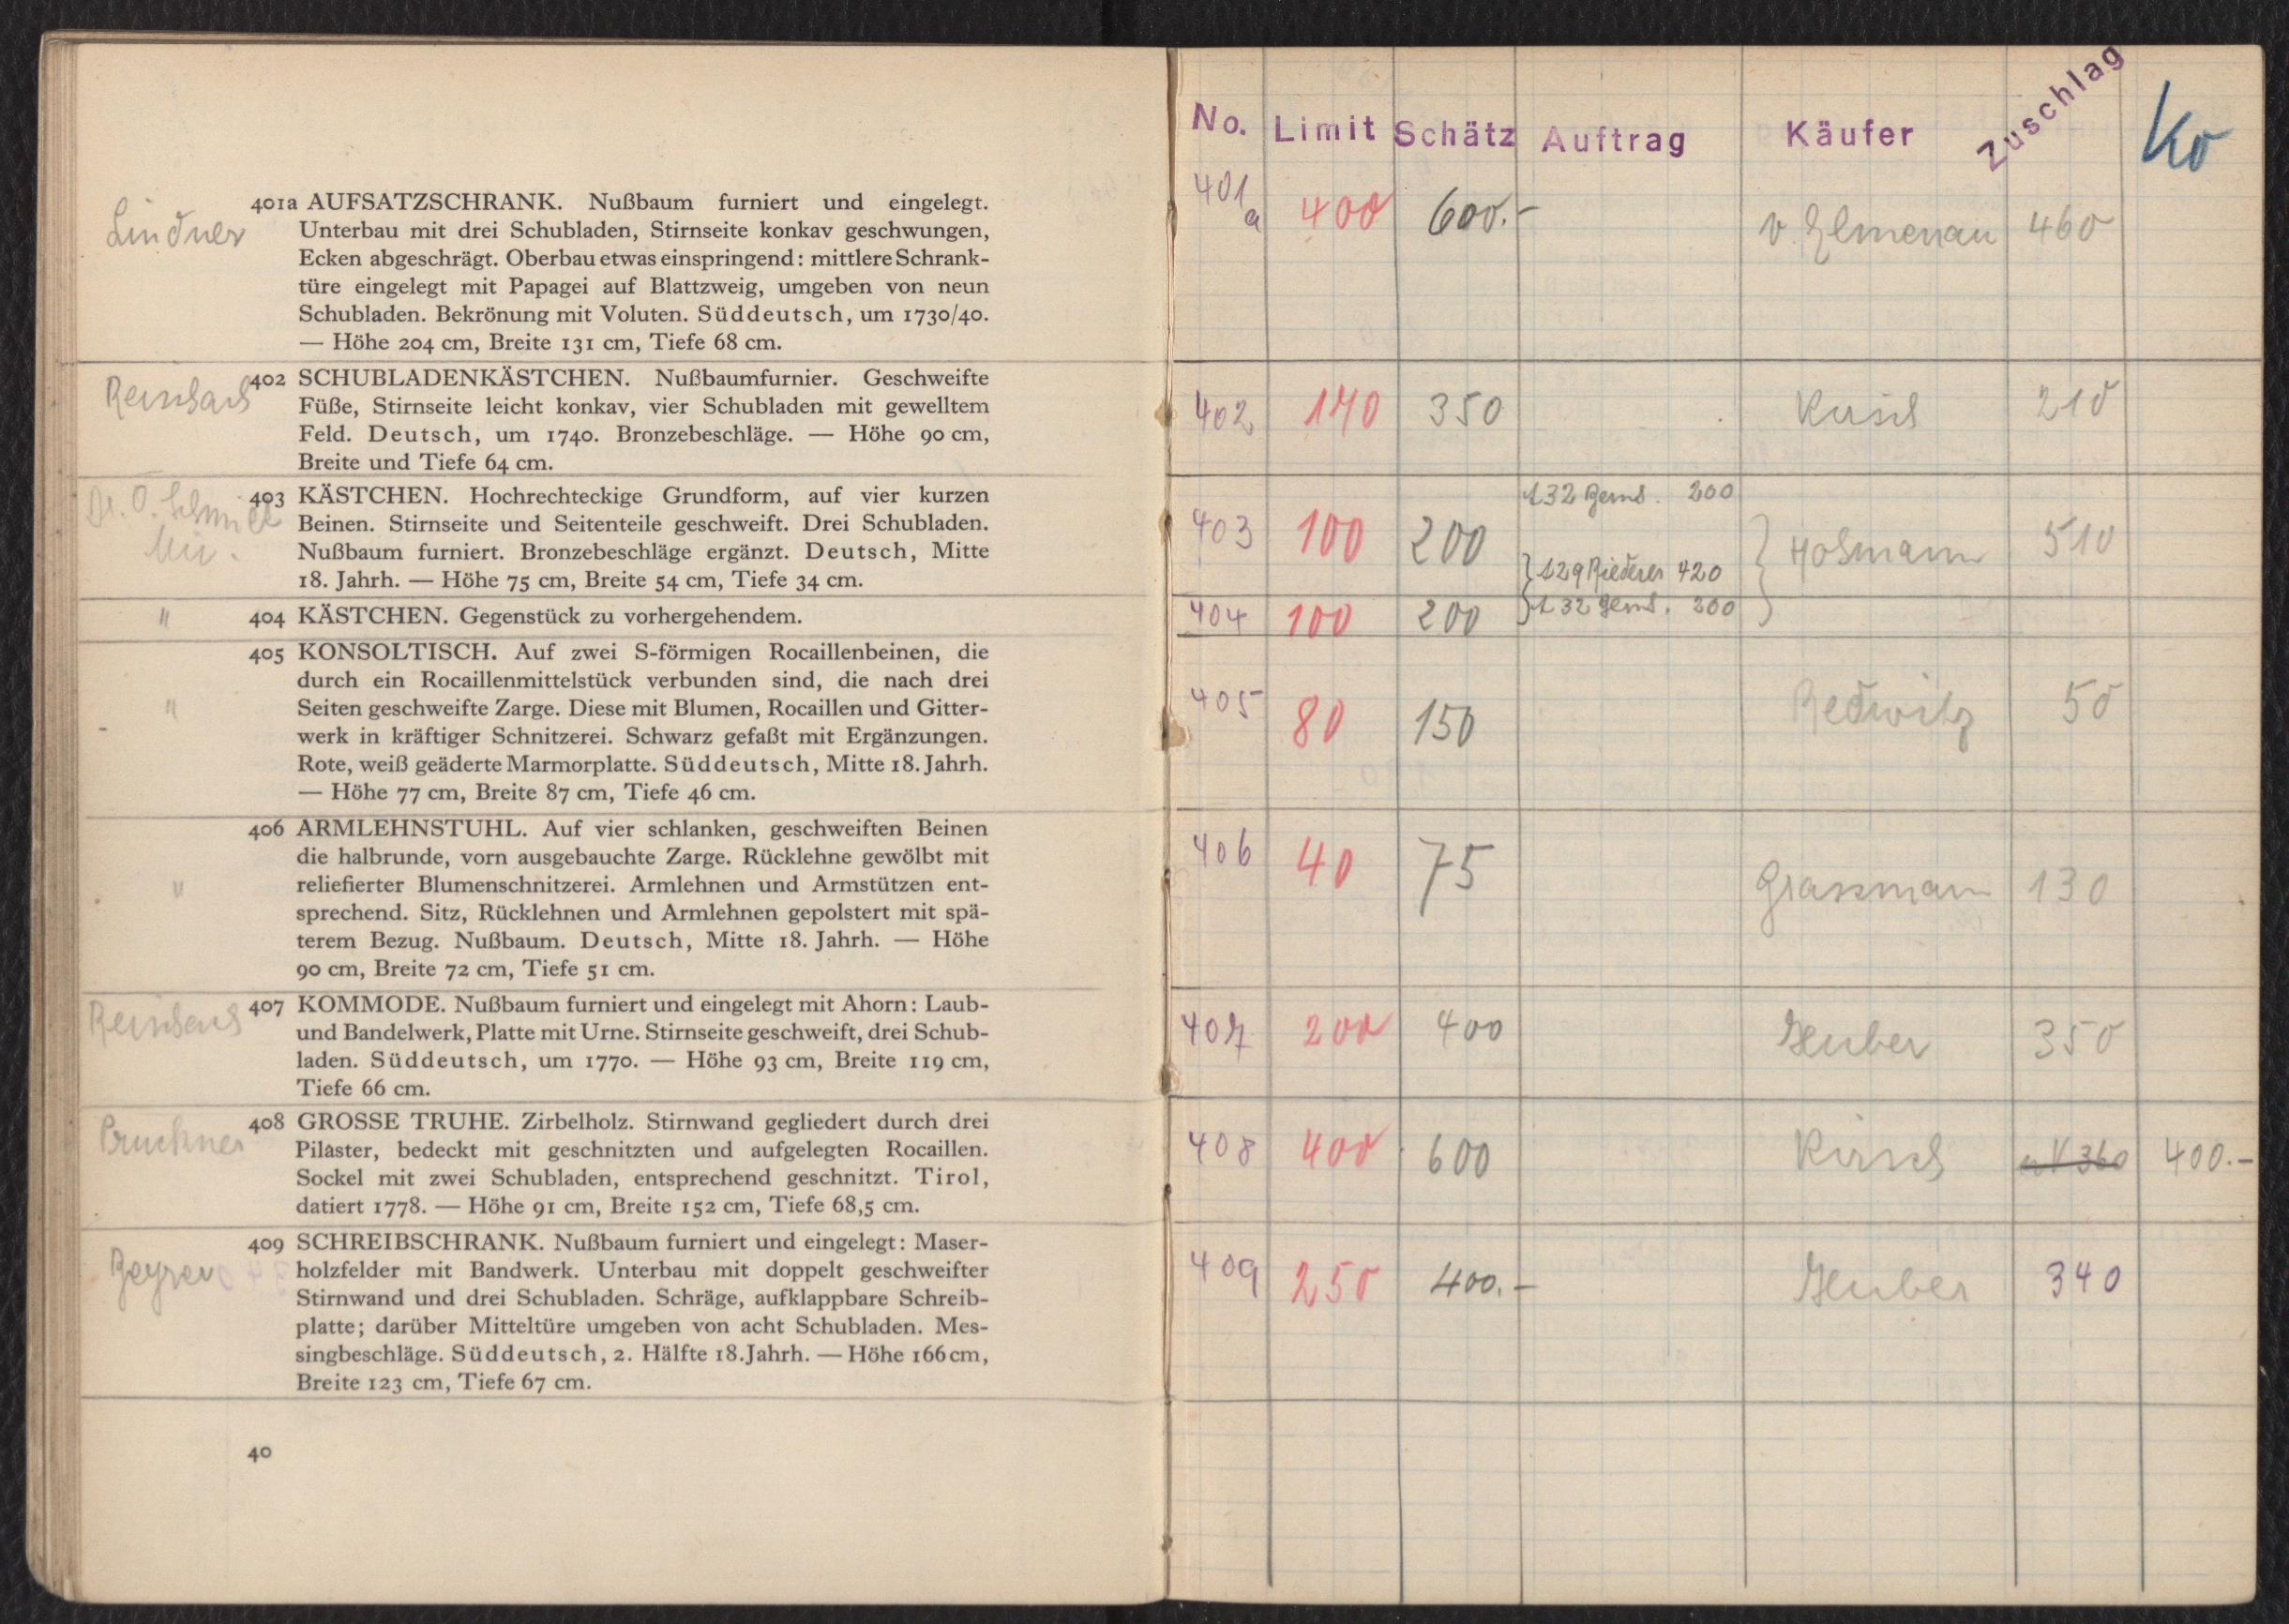 Lindner
401a AUFSATZSCHRANK. Nußbaum furniert und eingelegt.
Unterbau mit drei Schubladen, Stirnseite konkav geschwungen,
Ecken abgeschrägt. Oberbau etwas einspringend: mittlere Schrank-
türe eingelegt mit Papagei auf Blattzweig, umgeben von neun
Schubladen. Bekrönung mit Voluten. Süddeutsch, um 1730/40.
— Höhe 204 cm, Breite 131 cm, Tiefe 68 cm.
402 SCHUBLADENKÄSTCHEN. Nußbaumfurnier. Geschweifte
Füße, Stirnseite leicht konkav, vier Schubladen mit gewelltem
Feld. Deutsch, um 1740. Bronzebeschläge. — Höhe 90 cm,
Breite und Tiefe 64 cm.
Dr. O.
403 KÄSTCHEN. Hochrechteckige Grundform, auf vier kurzen
Beinen. Stirnseite und Seitenteile geschweift. Drei Schubladen.
Nußbaum furniert. Bronzebeschläge ergänzt. Deutsch, Mitte
18. Jahrh. — Höhe 75 cm, Breite 54 cm, Tiefe 34 cm.
" 404 KÄSTCHEN. Gegenstück zu vorhergehendem.
405 KONSOLTISCH. Auf zwei S-förmigen Rocaillenbeinen, die
durch ein Rocaillenmittelstück verbunden sind, die nach drei
" Seiten geschweifte Zarge. Diese mit Blumen, Rocaillen und Gitter-
werk in kräftiger Schnitzerei. Schwarz gefaßt mit Ergänzungen.
Rote, weiß geäderte Marmorplatte. Süddeutsch, Mitte 18. Jahrh.
— Höhe 77 cm, Breite 87 cm, Tiefe 46 cm.
406 ARMLEHNSTUHL. Auf vier schlanken, geschweiften Beinen
die halbrunde, vorn ausgebauchte Zarge. Rücklehne gewölbt mit
" reliefierter Blumenschnitzerei. Armlehnen und Armstützen ent-
sprechend. Sitz, Rücklehnen und Armlehnen gepolstert mit spä-
terem Bezug. Nußbaum. Deutsch, Mitte 18. Jahrh. — Höhe
90 cm, Breite 72 cm, Tiefe 51 cm.
407 KOMMODE. Nußbaum furniert und eingelegt mit Ahorn: Laub-
und Bandelwerk, Platte mit Urne. Stirnseite geschweift, drei Schub-
laden. Süddeutsch, um 1770. — Höhe 93 cm, Breite 119 cm,
Tiefe 66 cm.
Pruckner
408 GROSSE TRUHE. Zirbelholz. Stirnwand gegliedert durch drei
Pilaster, bedeckt mit geschnitzten und aufgelegten Rocaillen.
Sockel mit zwei Schubladen, entsprechend geschnitzt. Tirol,
datiert 1778. — Höhe 91 cm, Breite 152 cm, Tiefe 68,5 cm.
409 SCHREIBSCHRANK. Nußbaum furniert und eingelegt: Maser-
holzfelder mit Bandwerk. Unterbau mit doppelt geschweifter
Stirnwand und drei Schubladen. Schräge, aufklappbare Schreib-
platte; darüber Mitteltüre umgeben von acht Schubladen. Mes-
singbeschläge. Süddeutsch, 2. Hälfte 18. Jahrh. — Höhe 166 cm,
Breite 123 cm, Tiefe 67 cm.
40
No. Limit Schätz Auftrag Käufer Zuschlag Ko
401a 400 600.- v. Elmenau 460
402 170 350 Kirsch 210
132 200
403 100 200 Hofmann 510
129 Riederer 420
404 100 200 132 200
405 80 150 Redwitz 50
406 40 75 Grassmann 130
407 200 400 Huber 350
408 400 600 Kirsch 360 400.-
409 250 400.- Huber 340